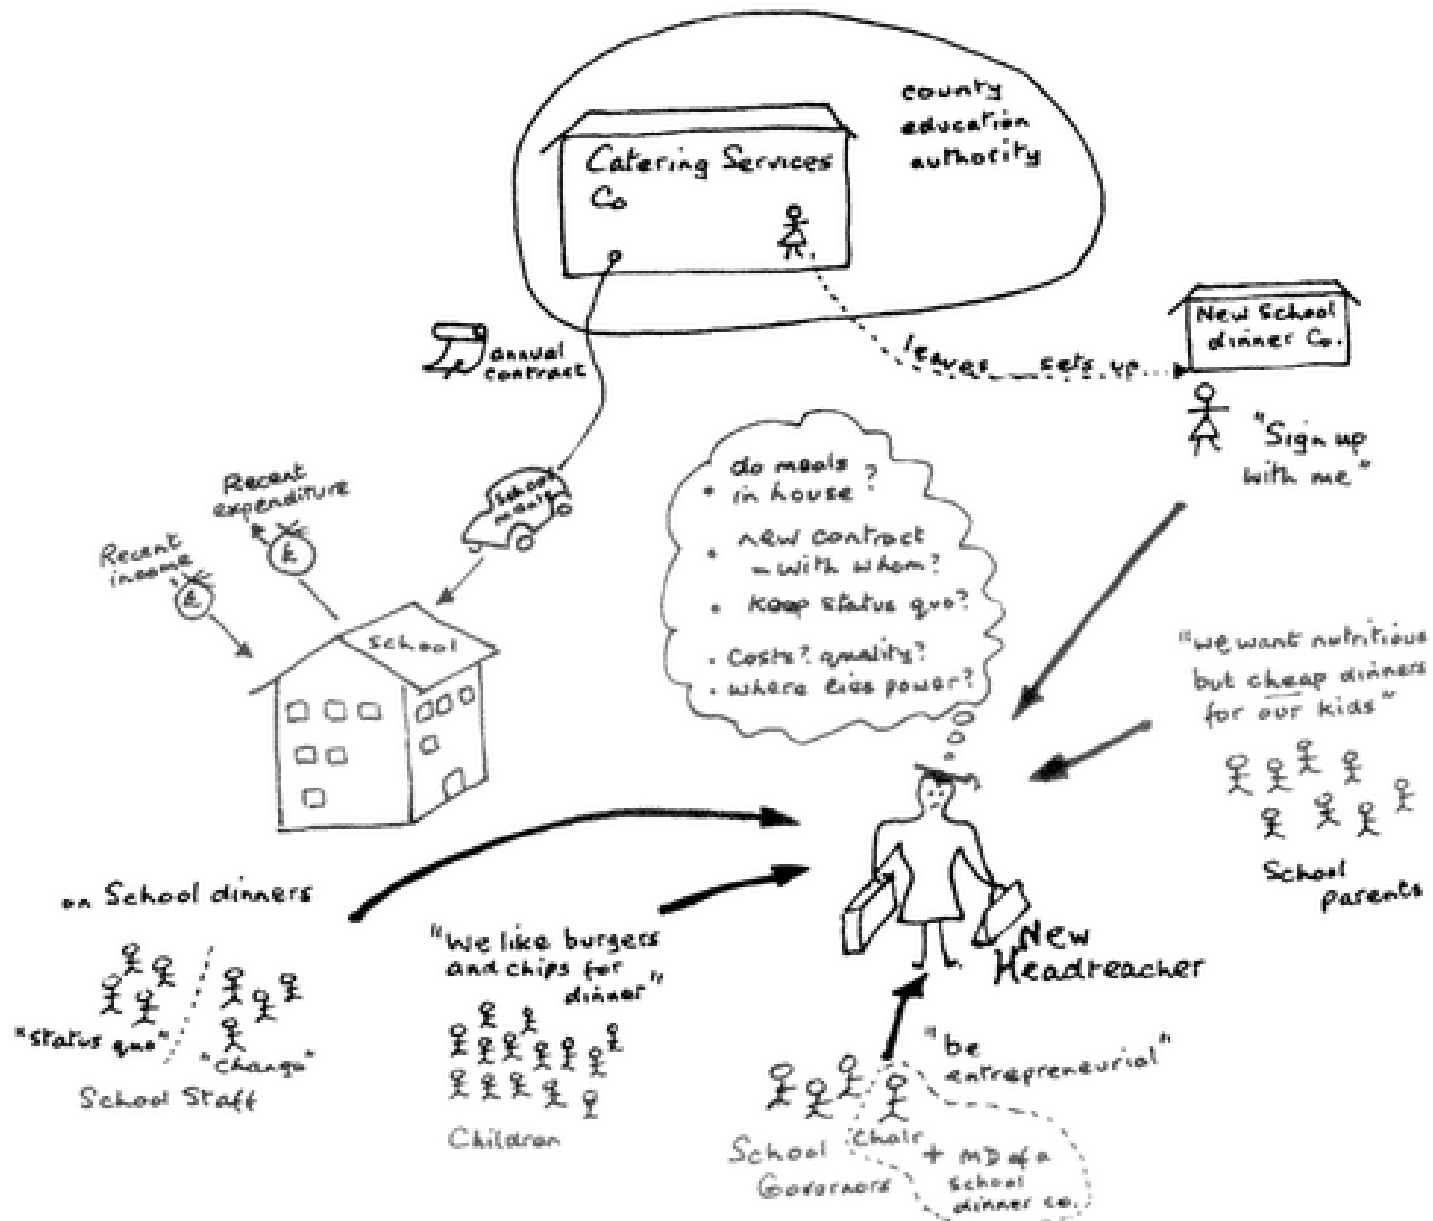 county
education
authority
Catering Services
Co
annual
contract
leaves sets up
New School
dinner Co.
"Sign up
with me"
Recent
expenditure
£
Recent
income
£
School
meals
School
do meals
• in house?
• new contract
- with whom?
• keep status quo?
• Costs? quality?
• where lies power?
"we want nutritious
but cheap dinners
for our kids"
School
parents
on School dinners
"status quo"
"change"
School Staff
"We like burgers
and chips for
dinner"
Children
New
Headteacher
"be
entrepreneurial"
School
Governors
Chair
+ MD of a
school
dinner co.